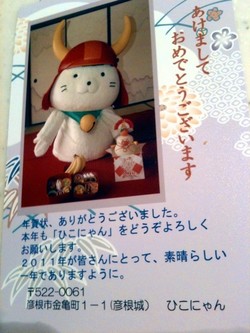 あけまして
おめでとうございます
年賀状、ありがとうございました。
本年も「ひこにゃん」をどうぞよろしく
お願いします。
2011年が皆さんにとって、素晴らしい
一年でありますように。
〒522-0061
彦根市金亀町1-1(彦根城) ひこにゃん